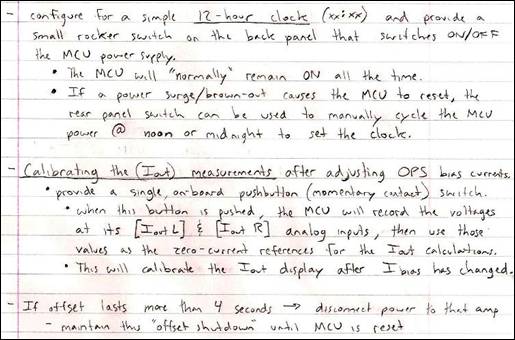 - configure for a simple 12-hour clock (xx:xx) and provide a
small rocker switch on the back panel that switches ON/OFF
the MCU power supply.
• The MCU will "normally" remain ON all the time.
• If a power surge/brown-out causes the MCU to reset, the
rear panel switch can be used to manually cycle the MCU
power @ noon or midnight to set the clock.
- Calibrating the (Iout) measurements after adjusting OPS bias currents.
• provide a single, on-board pushbutton (momentary contact) switch.
• when this button is pushed, the MCU will record the voltages
at its [Iout L] & [Iout R] analog inputs, then use those
values as the zero-current references for the Iout calculations.
• This will calibrate the Iout display after Ibias has changed.
- If offset lasts more than 4 seconds → disconnect power to that amp
- maintain this "offset shutdown" until MCU is reset